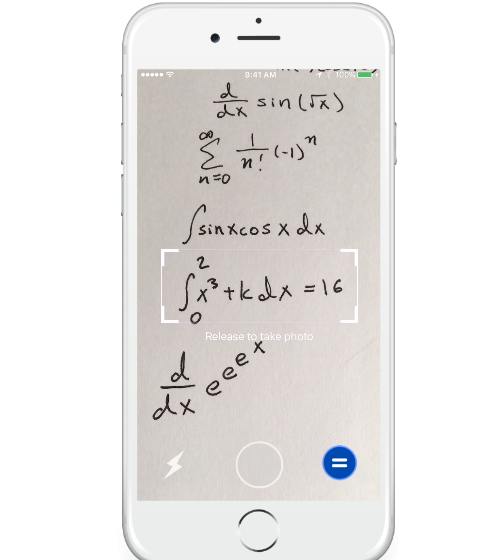 9:41 AM 100%
d/dx sin(√x)
∞∑n=0 1/n! (-1)ⁿ
∫sinxcosxdx
∫₀² x³+kdx=16
Release to take photo
d/dx e^e^e^x
=